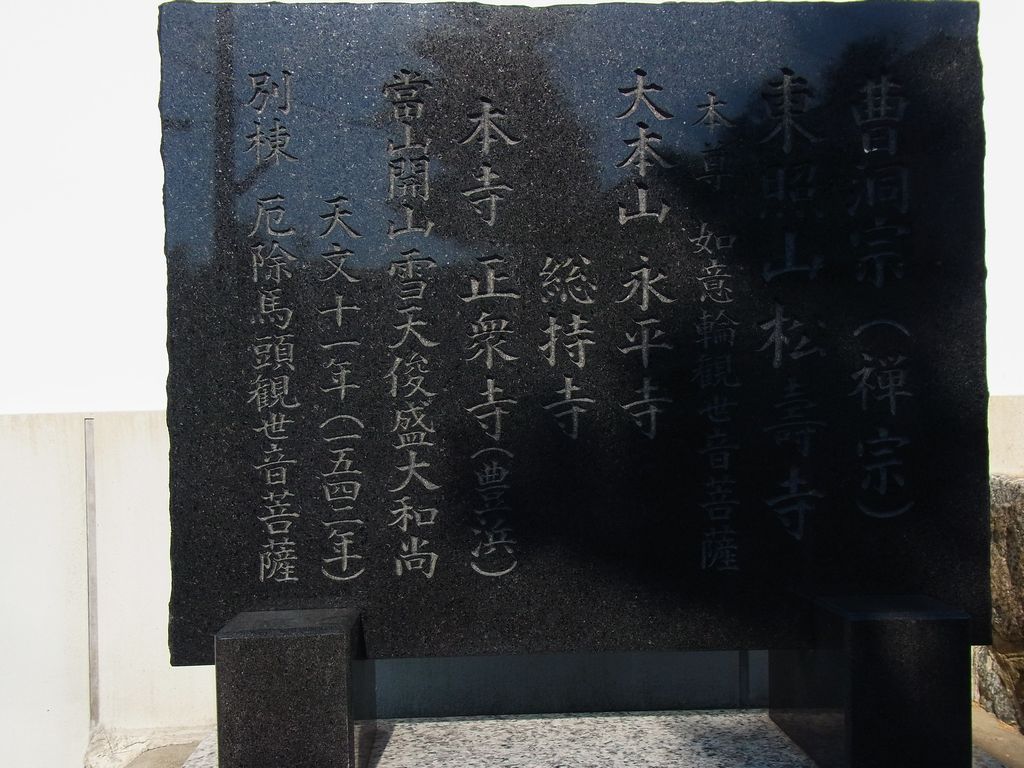 曹洞宗（禅宗）
東照山松壽寺
本尊 如意輪観世音菩薩
大本山 永平寺
総持寺
本寺 正衆寺（豊浜）
當山開山雪天俊盛大和尚
天文十一年（一五四二年）
別棟 厄除馬頭観世音菩薩